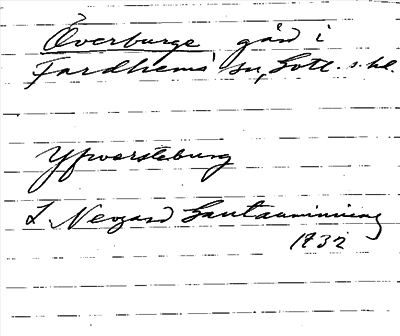 Överburge gård i
Fardhems sn, Gotl. s. hd.
Yfwersteburg
L. Neogard Gautauminning
1732